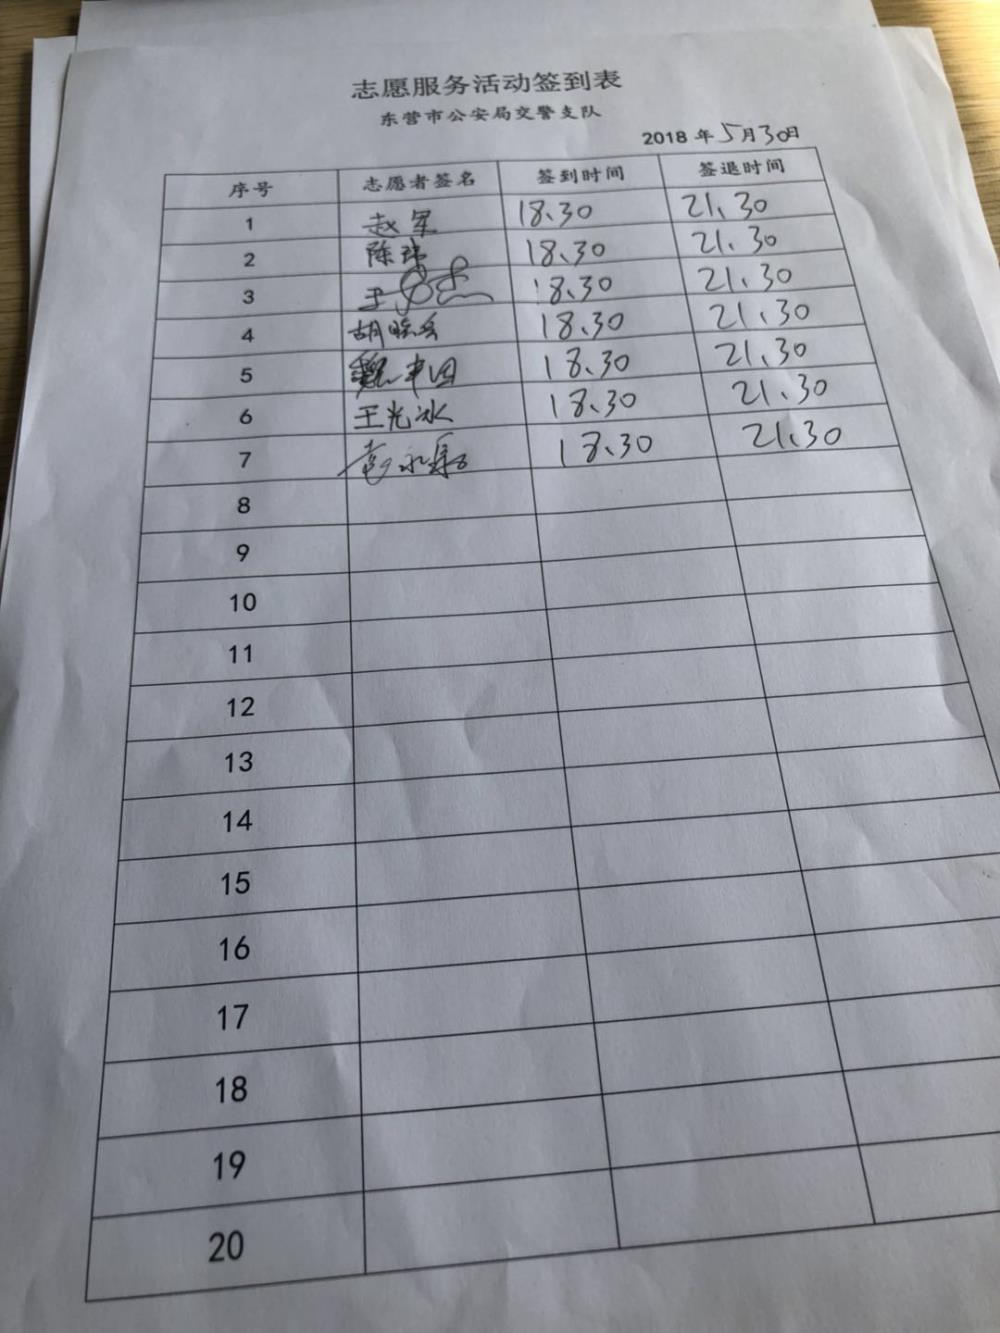 志愿服务活动签到表
东营市公安局交警支队
2018 年 5 月 30 日
序号 志愿者签名 签到时间 签退时间
1 赵军 18.30 21.30
2 陈 18.30 21.30
3 18.30 21.30
4 胡 18.30 21.30
5 魏 18.30 21.30
6 王光冰 18.30 21.30
7 18.30 21.30
8
9
10
11
12
13
14
15
16
17
18
19
20